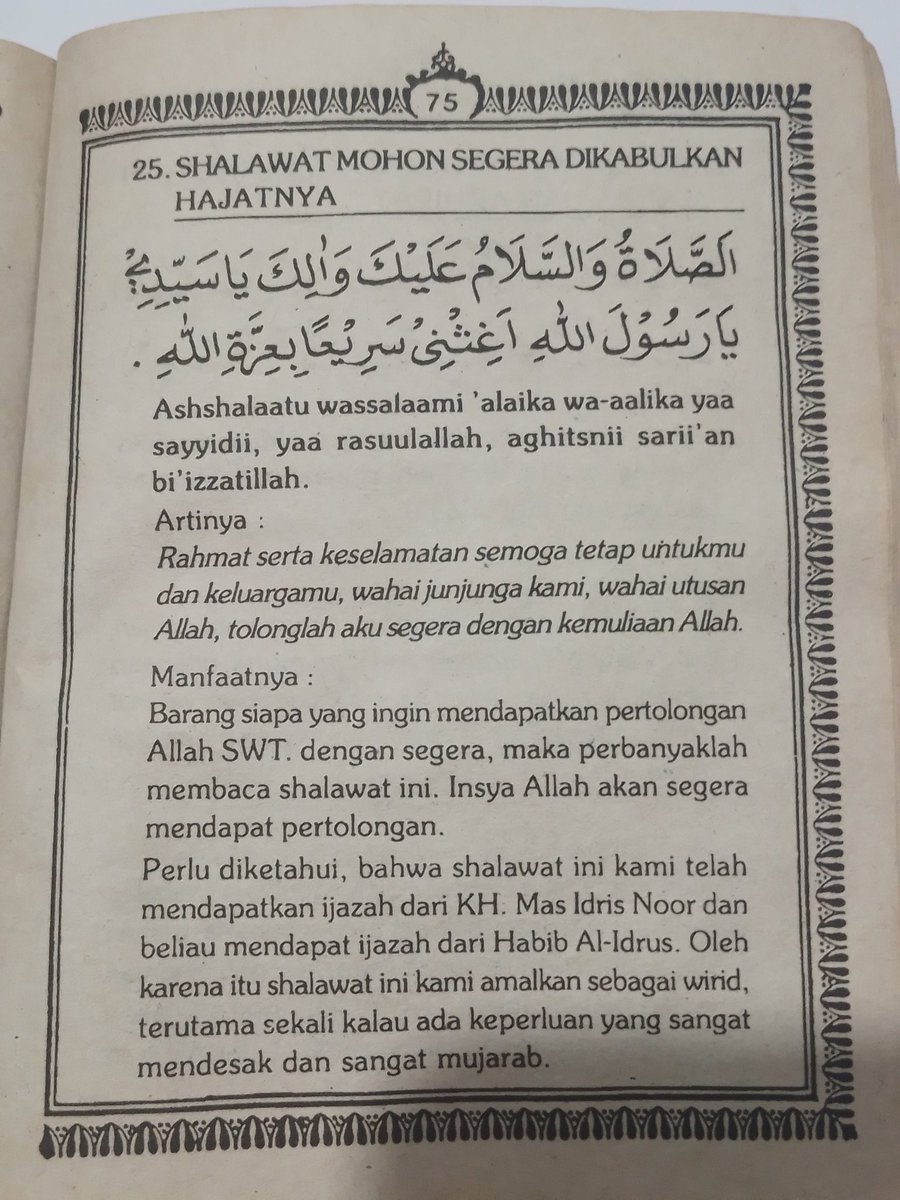 75
25. SHALAWAT MOHON SEGERA DIKABULKAN
HAJATNYA
اَلصَّلَاةُ وَالسَّلَامُ عَلَيْكَ وَاٰلِكَ يَاسَيِّدِيْ
يَارَسُوْلَ اللهِ اَغِثْنِيْ سَرِيْعًا بِعِزَّةِ اللهِ .
Ashshalaatu wassalaami 'alaika wa-aalika yaa
sayyidii, yaa rasuulallah, aghitsnii sarii'an
bi'izzatillah.
Artinya :
Rahmat serta keselamatan semoga tetap untukmu
dan keluargamu, wahai junjunga kami, wahai utusan
Allah, tolonglah aku segera dengan kemuliaan Allah.
Manfaatnya :
Barang siapa yang ingin mendapatkan pertolongan
Allah SWT. dengan segera, maka perbanyaklah
membaca shalawat ini. Insya Allah akan segera
mendapat pertolongan.
Perlu diketahui, bahwa shalawat ini kami telah
mendapatkan ijazah dari KH. Mas Idris Noor dan
beliau mendapat ijazah dari Habib Al-Idrus. Oleh
karena itu shalawat ini kami amalkan sebagai wirid,
terutama sekali kalau ada keperluan yang sangat
mendesak dan sangat mujarab.